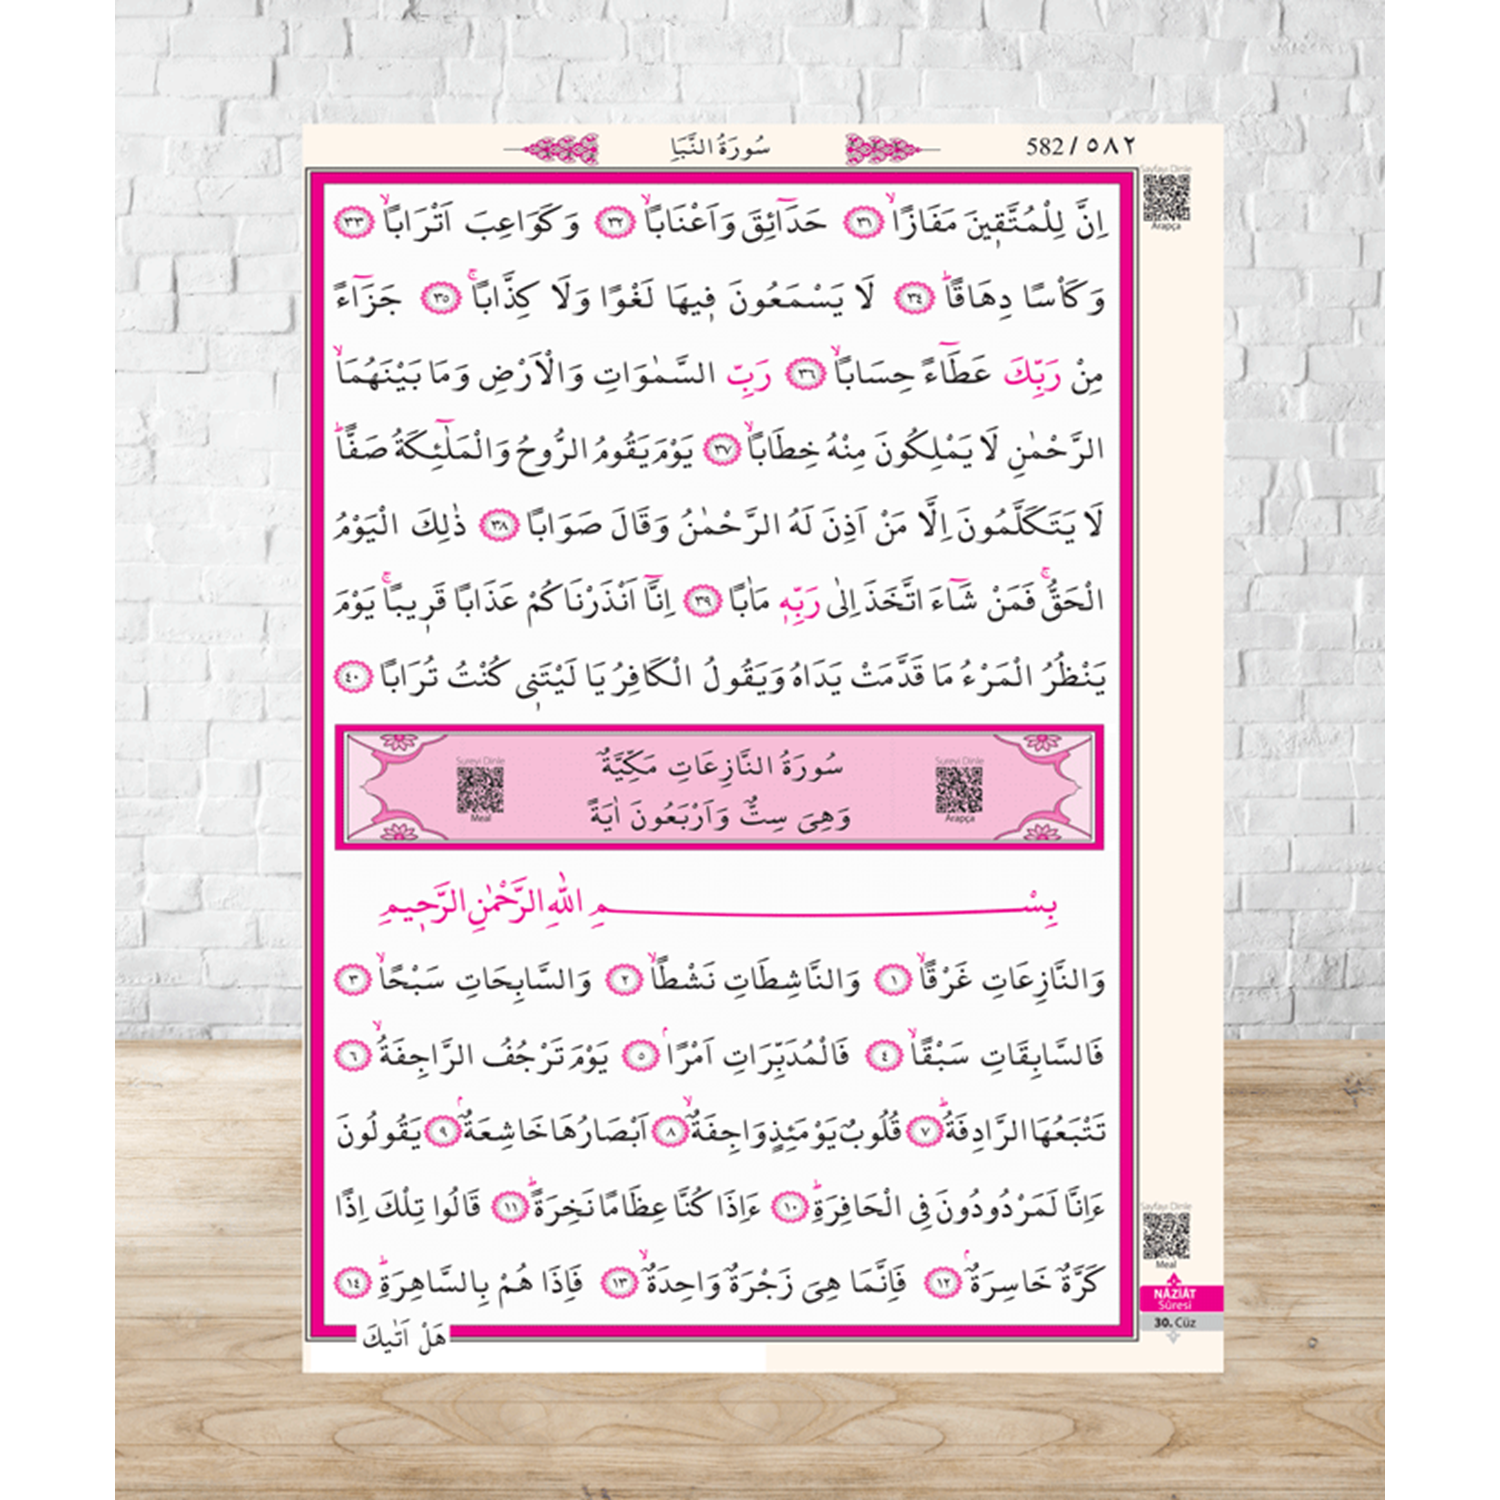 سُورَةُ النَّبَإِ
582 / ٥٨٢
Sayfayı Dinle
Arapça
اِنَّ لِلْمُتَّق۪ينَ مَفَازًاۙ ﴿٣١﴾ حَدَٓائِقَ وَاَعْنَابًاۙ ﴿٣٢﴾ وَكَوَاعِبَ اَتْرَابًاۙ ﴿٣٣﴾
وَكَأْسًا دِهَاقًاۜ ﴿٣٤﴾ لَا يَسْمَعُونَ ف۪يهَا لَغْوًا وَلَا كِذَّابًاۚ ﴿٣٥﴾ جَزَٓاءً
مِنْ رَبِّكَ عَطَٓاءً حِسَابًاۙ ﴿٣٦﴾ رَبِّ السَّمٰوَاتِ وَالْاَرْضِ وَمَا بَيْنَهُمَاۙ
الرَّحْمٰنِ لَا يَمْلِكُونَ مِنْهُ خِطَابًاۙ ﴿٣٧﴾ يَوْمَ يَقُومُ الرُّوحُ وَالْمَلٰٓئِكَةُ صَفًّاۜ
لَا يَتَكَلَّمُونَ اِلَّا مَنْ اَذِنَ لَهُ الرَّحْمٰنُ وَقَالَ صَوَابًا ﴿٣٨﴾ ذٰلِكَ الْيَوْمُ
الْحَقُّۚ فَمَنْ شَٓاءَ اتَّخَذَ اِلٰى رَبِّه۪ مَاٰبًا ﴿٣٩﴾ اِنَّٓا اَنْذَرْنَاكُمْ عَذَابًا قَر۪يبًاۚ يَوْمَ
يَنْظُرُ الْمَرْءُ مَا قَدَّمَتْ يَدَاهُ وَيَقُولُ الْكَافِرُ يَا لَيْتَن۪ي كُنْتُ تُرَابًا ﴿٤٠﴾
Sureyi Dinle
Arapça
سُورَةُ النَّازِعَاتِ مَكِّيَّةٌ
وَهِيَ سِتٌّ وَاَرْبَعُونَ اٰيَةً
Sureyi Dinle
Meal
بِسْمِ اللّٰهِ الرَّحْمٰنِ الرَّح۪يمِ
وَالنَّازِعَاتِ غَرْقًاۙ ﴿١﴾ وَالنَّاشِطَاتِ نَشْطًاۙ ﴿٢﴾ وَالسَّابِحَاتِ سَبْحًاۙ ﴿٣﴾
فَالسَّابِقَاتِ سَبْقًاۙ ﴿٤﴾ فَالْمُدَبِّرَاتِ اَمْرًاۢ ﴿٥﴾ يَوْمَ تَرْجُفُ الرَّاجِفَةُۙ ﴿٦﴾
تَتْبَعُهَا الرَّادِفَةُۜ ﴿٧﴾ قُلُوبٌ يَوْمَئِذٍ وَاجِفَةٌۙ ﴿٨﴾ اَبْصَارُهَا خَاشِعَةٌۢ ﴿٩﴾ يَقُولُونَ
ءَاِنَّا لَمَرْدُودُونَ فِي الْحَافِرَةِۜ ﴿١٠﴾ ءَاِذَا كُنَّا عِظَامًا نَخِرَةًۜ ﴿١١﴾ قَالُوا تِلْكَ اِذًا
كَرَّةٌ خَاسِرَةٌۢ ﴿١٢﴾ فَاِنَّمَا هِيَ زَجْرَةٌ وَاحِدَةٌۙ ﴿١٣﴾ فَاِذَا هُمْ بِالسَّاهِرَةِۜ ﴿١٤﴾
هَلْ اَتٰيكَ
Sayfayı Dinle
Meal
NÂZİÂT
Sûresi
30. Cüz